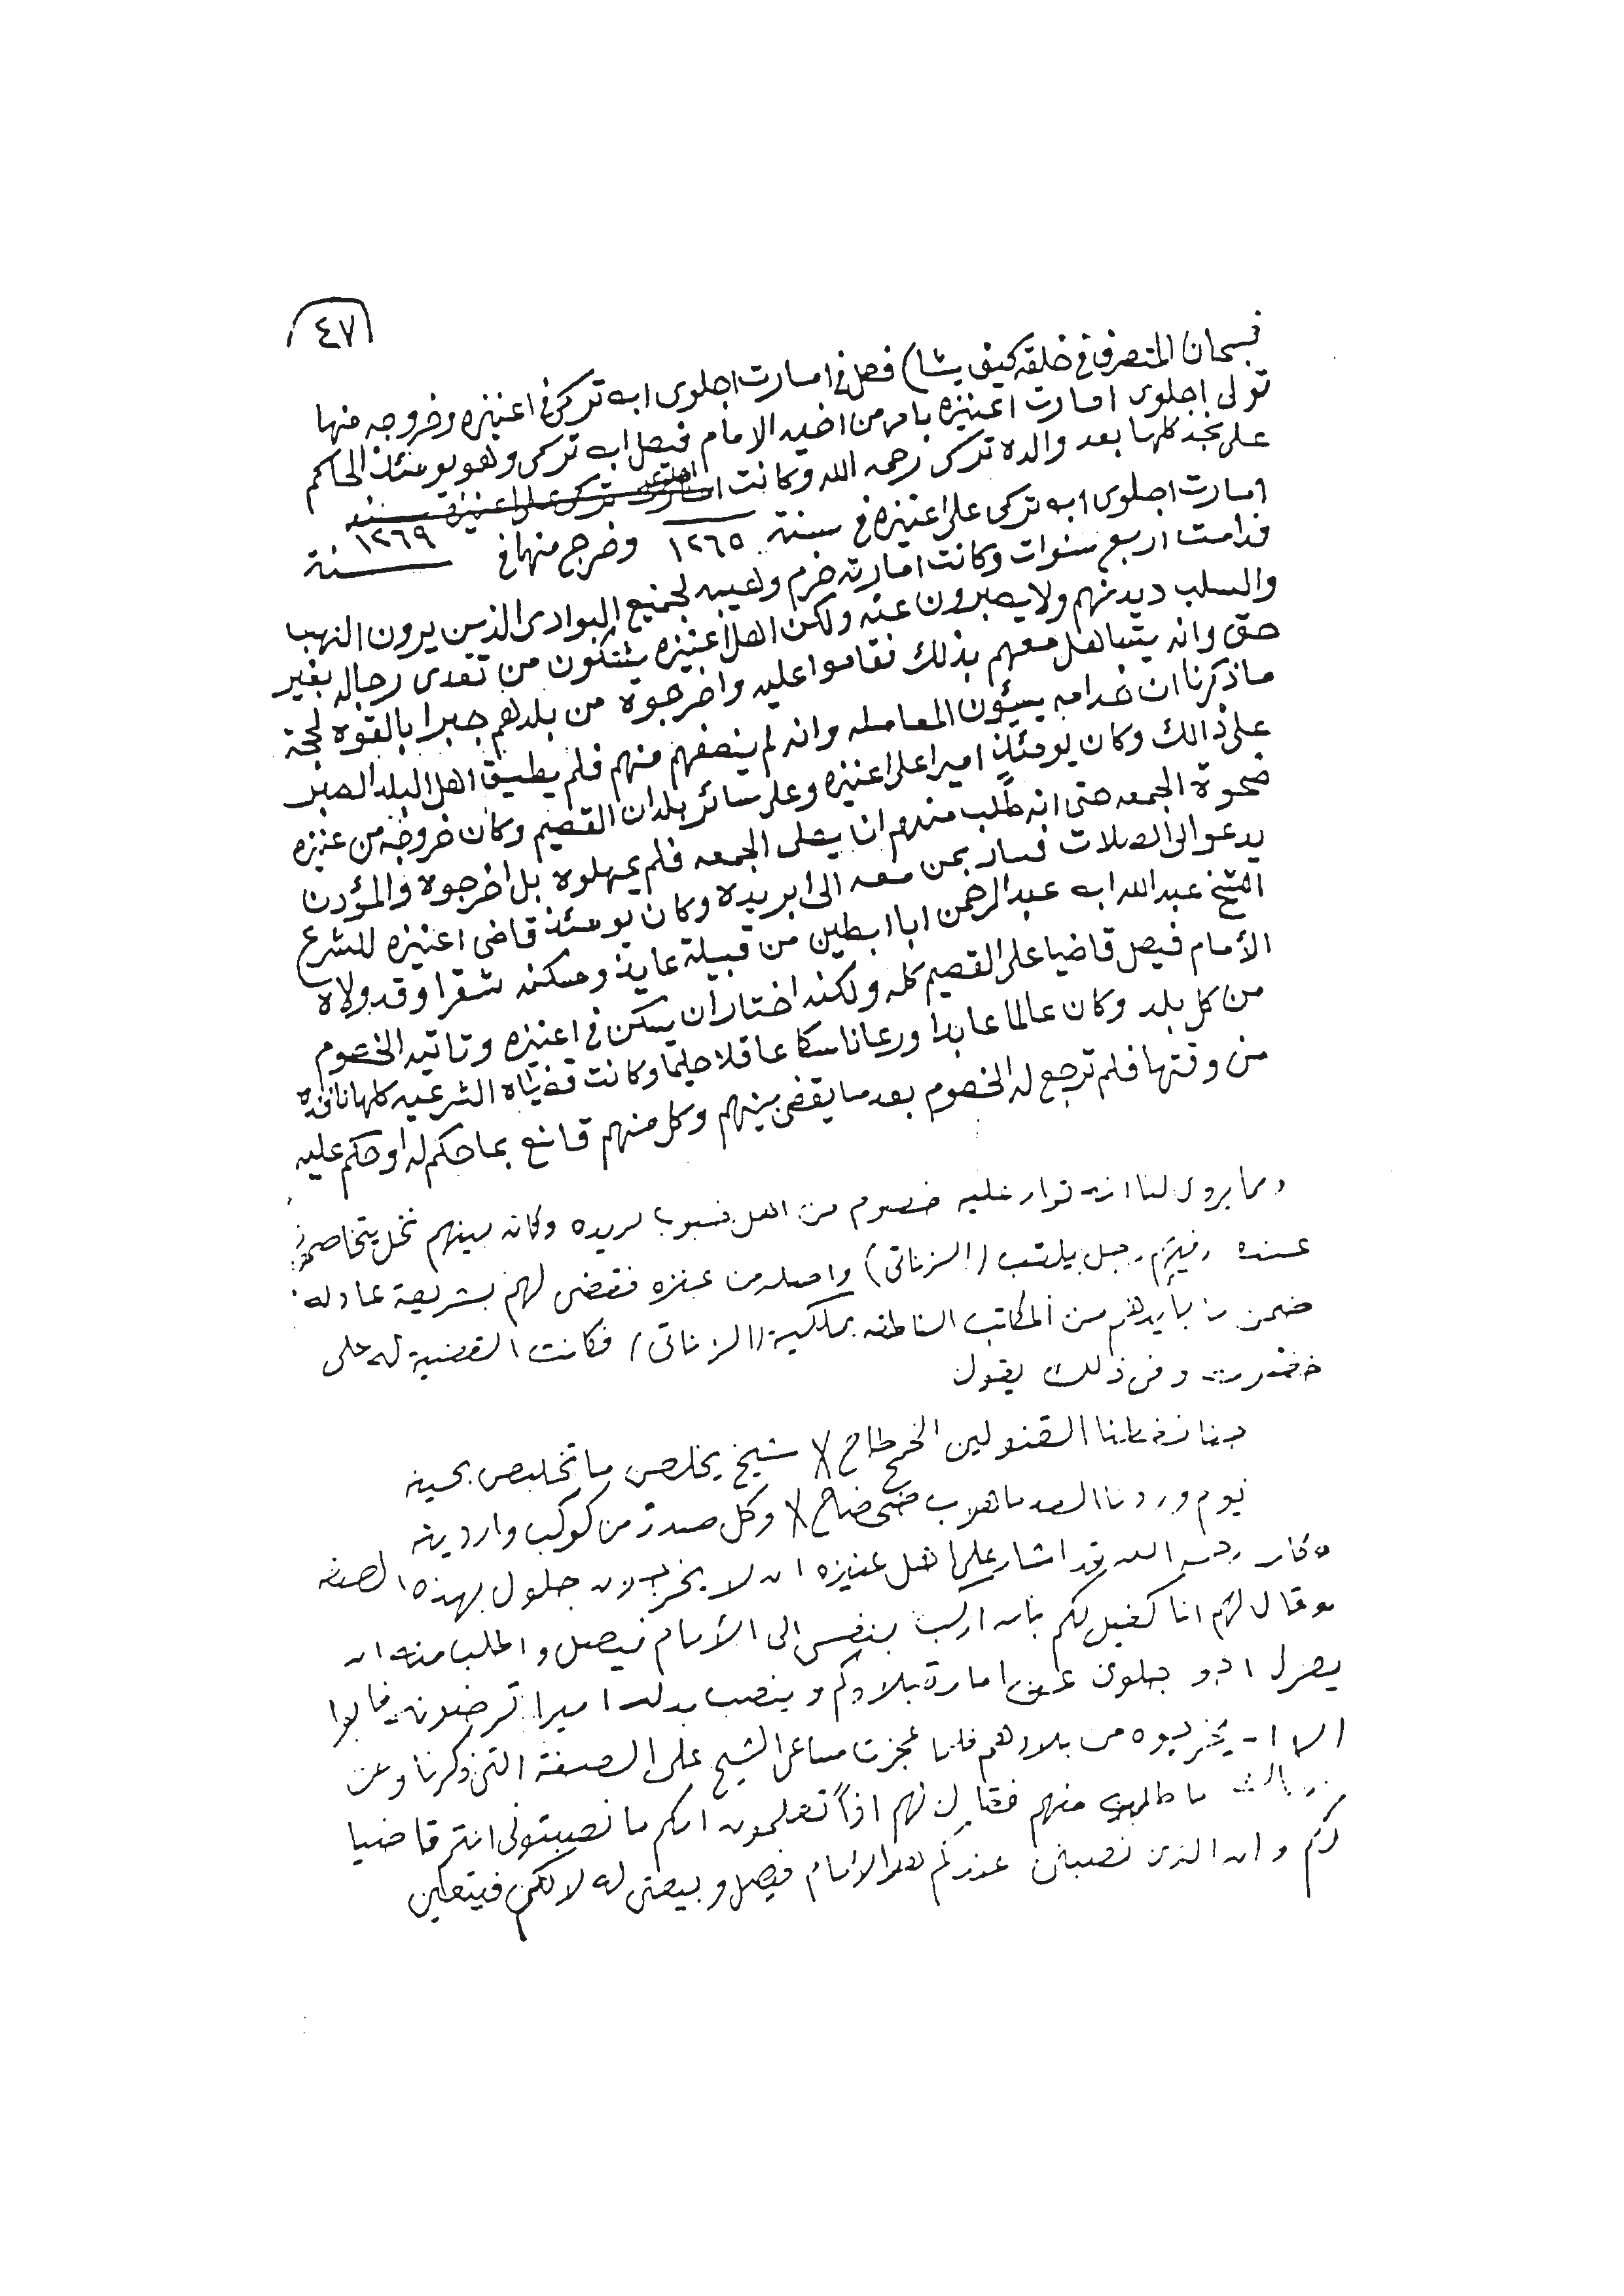 ٤٧
فسبحان المتصرف في خلقه كيف يشا) فصل في امارت اجلوى ابه تركي في اعنيزه وخروجه منها
تولى اجلوى امارت اعنيزه بامر من اخيه الامام فيصل ابه تركي وهو يومئذ الحاكم
على نجد كلها بعد والده تركي رحمه الله وكانت امارت تركي على اعنيزه سنه
امارت اجلوى ابه تركي على اعنيزه في سنة ١٢٦٥ وخرج منها في سنة ١٢٦٩
فدامت اربع سنوات وكانت امارته حزم وهيبه لجميع البوادى الذين يرون النهب
والسلب ديدنهم ولا يصبرون عنه ولكن اهل اعنيزه يشتكون من تعدى رجاله بغير
حق وانه يتساهل معهم بذلك فقاموا عليه واخرجوه من بلدهم جبرا بالقوه لحجة
ما ذكرنا ان خدامه يسيؤن المعامله وانه لم ينصفهم منهم فلم يطيق اهل البلد الصبر
على ذالك وكان يومئذٍ اميرا على اعنيزه وعلى سائر بلدان القصيم وكان خروجه من عنيزه
ضحوة الجمعه حتى انه طلب منهم ان يصلى الجمعه فلم يمهلوه بل اخرجوه والمؤذن
يدعو الى الصلات فسار بمن معه الى ابريده وكان يومئذ قاضى اعنيزه للشرع
الشيخ عبدالله ابه عبدالرحمن ابا ابطين من قبيلة عايذ ومسكنه شقرا وقد ولاه
الأمام فيصل قاضيا على القصيم كله ولكنه اختار ان يسكن في اعنيزه وتاتيه الخصوم
من كل بلد وكان عالما عابدا ورعا ناسكا عاقلا حليما وكانت قضياه الشرعيه كلها نافذه
من وقتها فلم ترجع له الخصوم بعد ما يقضى بينهم وكل منهم قانع بما حكم له او حكم عليه
ومما يروى لنا انه توارد عليه خصوم من اهل بريده وكانه بينهم نخل يتخاصمون
عنده وفيهم رجل يلقب (الزناتى) واصله من عنزه فقضى لهم بشريعة عادله
ضمن ما بأيدهم من المكاتب الناطقه بملكية (الزناتى) فكانت القضية له على
وفى ذلك يقول
القنولين الخرطاح // شيخ يخلص ما تخليص بحينه
يوم وردنا العد ما هوب ضحضاح // وكل صدر من كوكب وارد ينه
وكان رحمه الله قد اشار على اهل عنيزه ان لا يخرجون جلوى بهذه الصفه
وقال لهم انا كفيل لكم بانه اركب بنفسى الى الأمام فيصل واطلب منه ان
يعزل جلوى عن امارة بلادكم وينصب بدله اميرا ترضونه فابوا
الا ان يخرجوه من بلادهم فلما عجزت مساعى الشيخ على الصفة التى ذكرنا وعن
ما طلبه منهم فقال لهم اذاً تعلمون انكم ما نصبتونى انتم قاضيا
لكم وان الذى نصبنى عندكم هو الأمام فيصل وبيعتى له لا لكم فيتعين